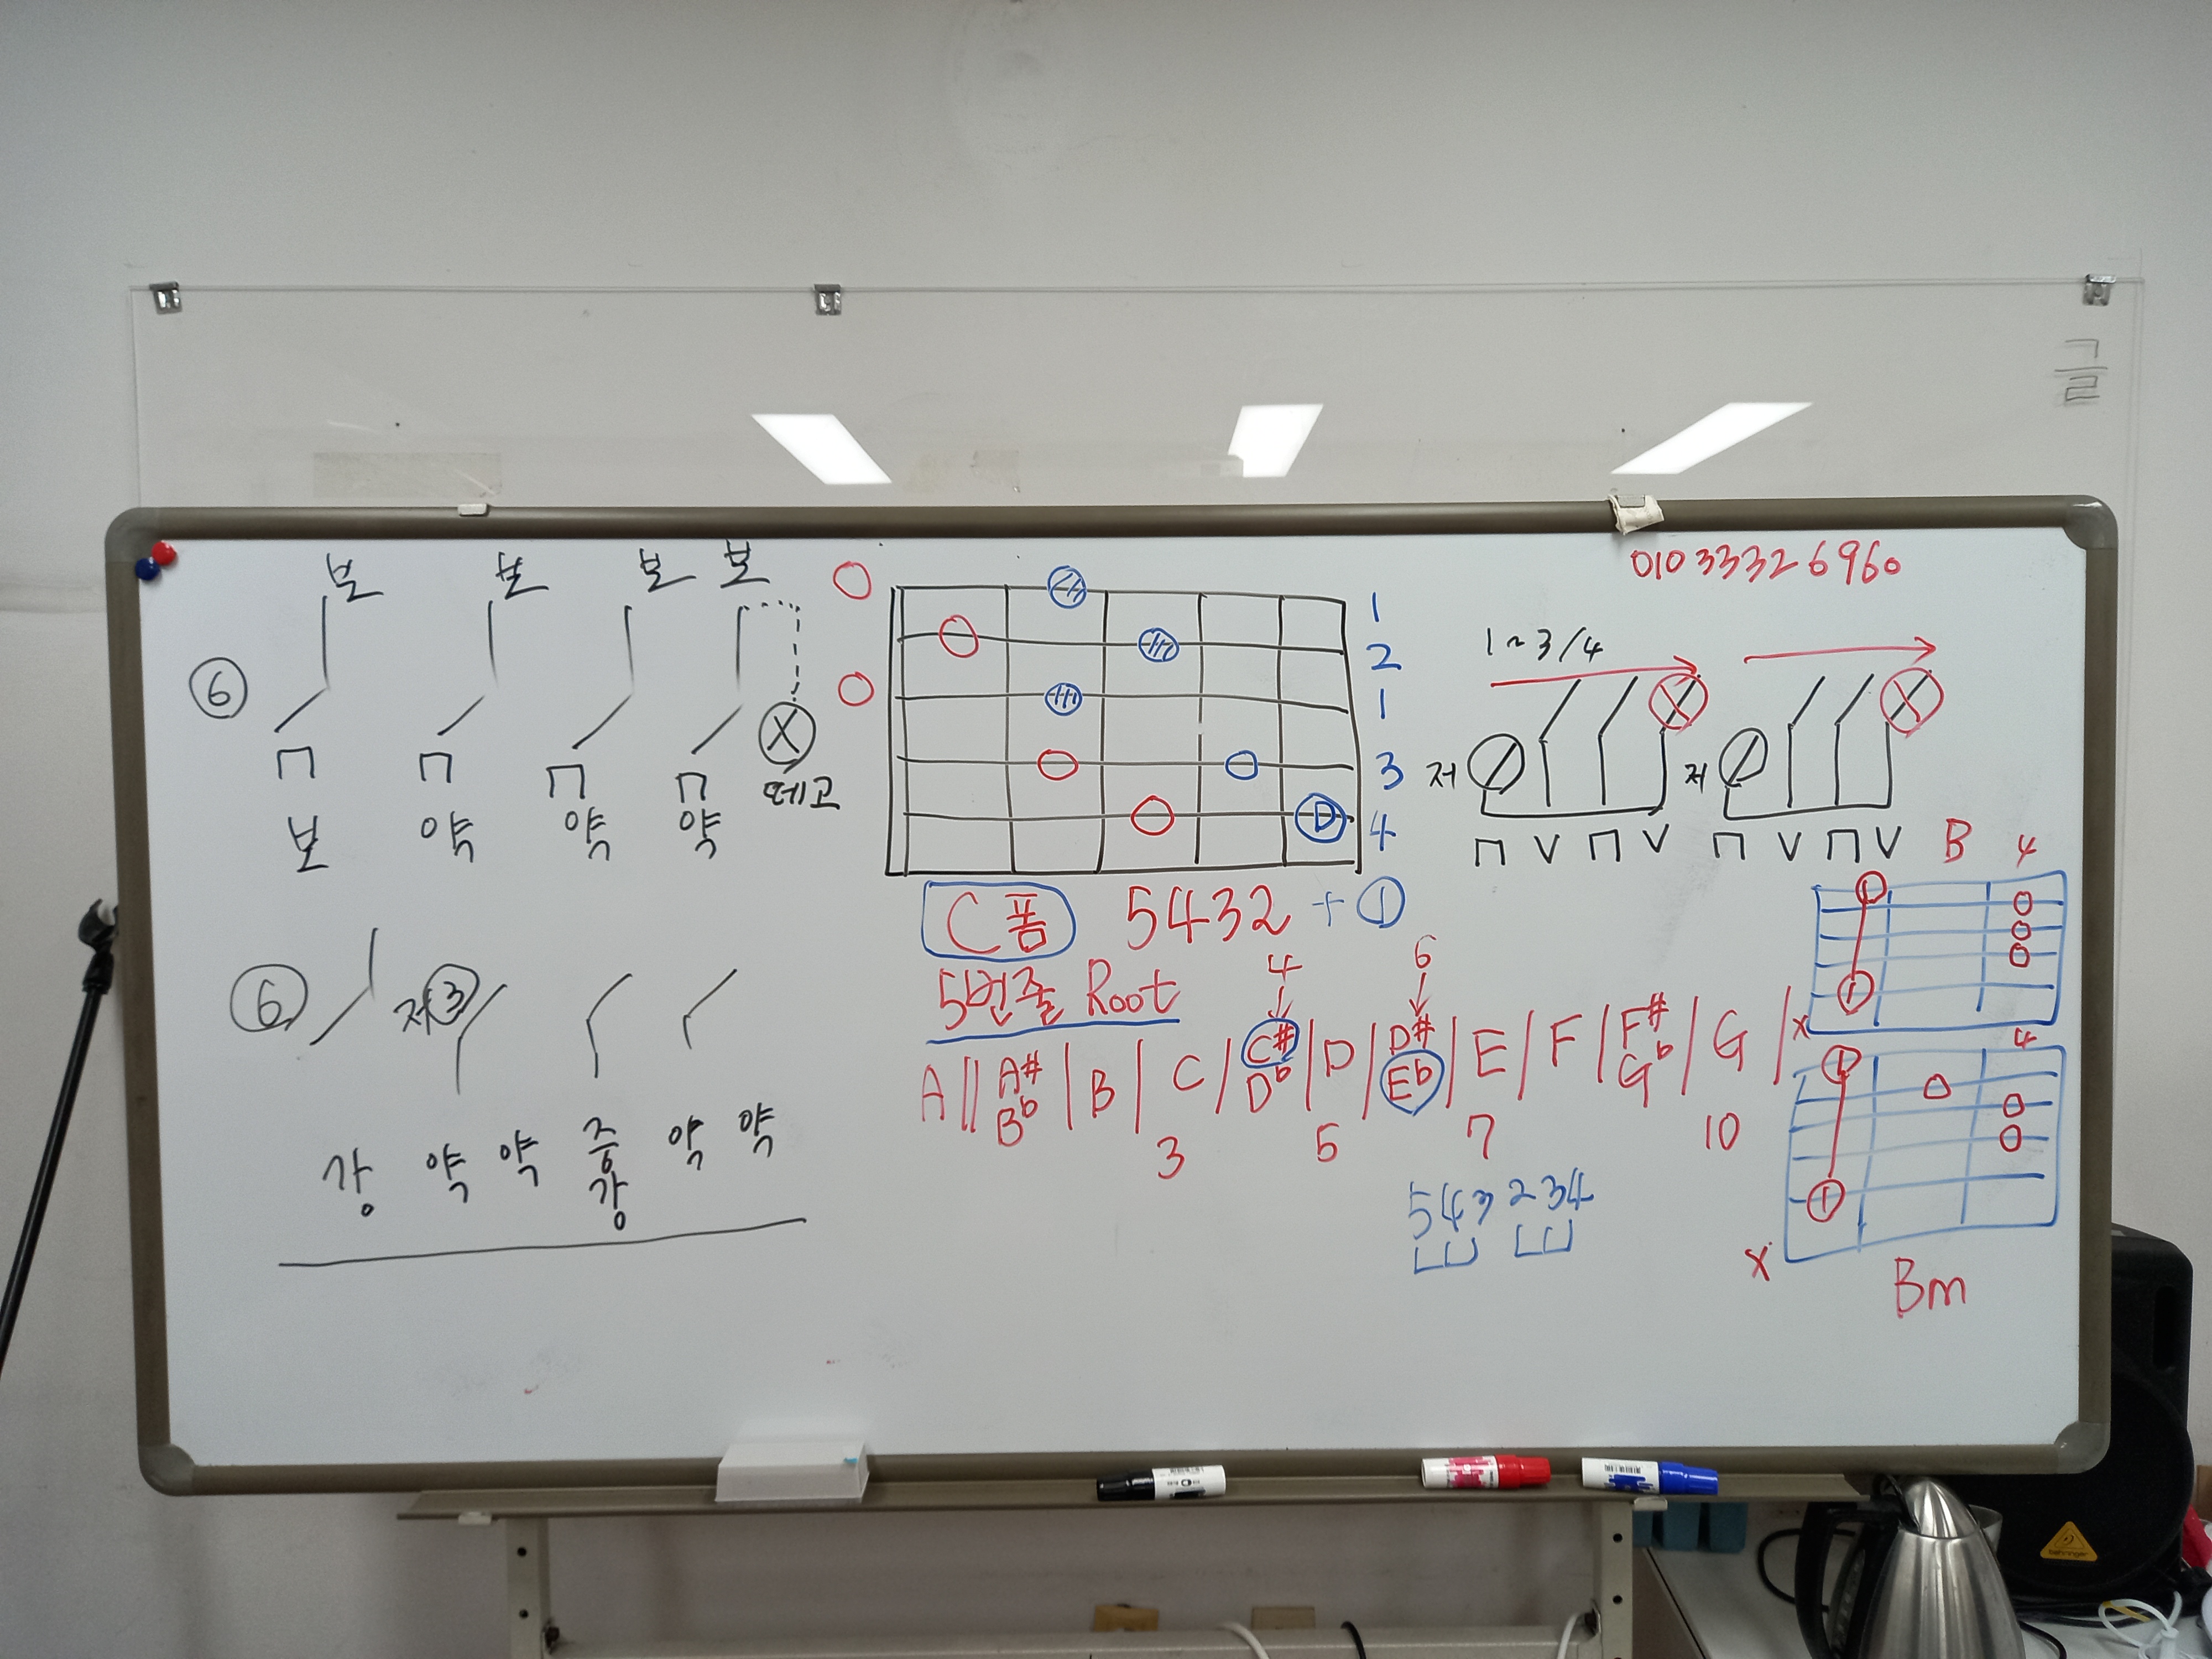 글
010 3332 6960
보 보 보 보
⑥
ㄇ ㄇ ㄇ ㄇ Ⓧ
떼고
보 약 약 약
1
2
1
3
D 4
1~3/4
저 저
ㄇ V ㄇ V ㄇ V ㄇ V
B 4
1
1
x
C폼 5432 + ①
5번줄 Root
4 6
A || A# | B | C | C# | D | D# | E | F | F# | G |
Bb Db Eb Gb
3 5 7 10
⑥ 저③
강 약 약 중강 약 약
543 234
4
1
1
x
Bm
behringer